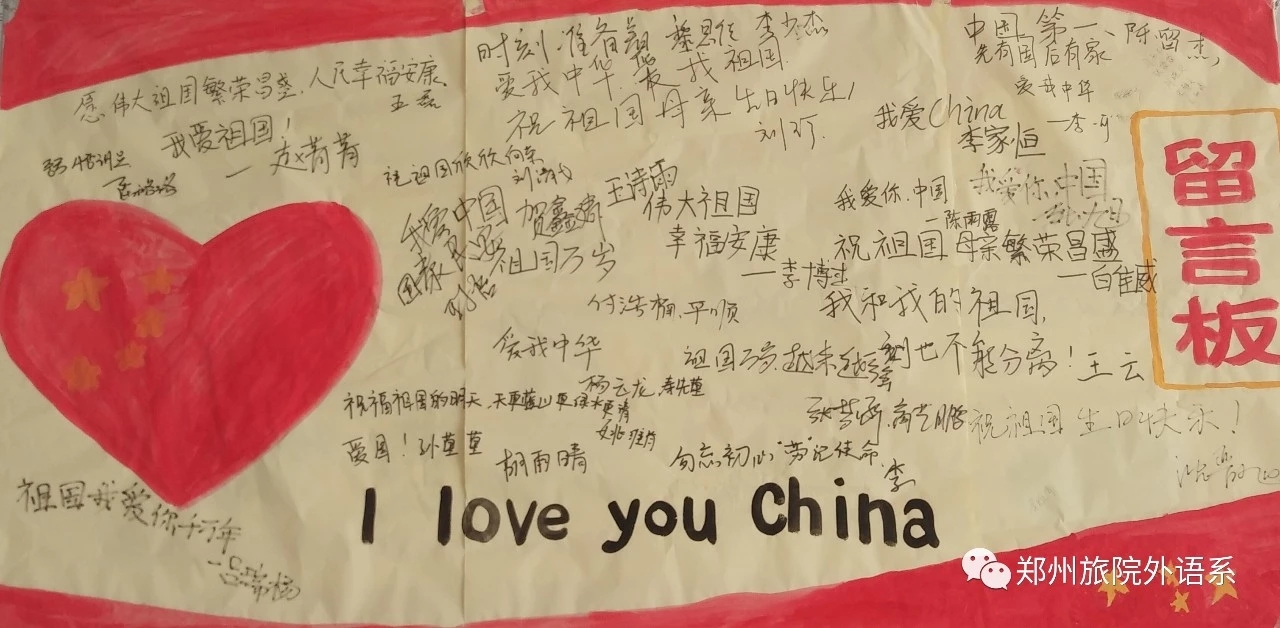 愿伟大祖国繁荣昌盛,人民幸福安康
王磊
我爱祖国!
一赵菁菁
时刻准备着
爱我中华
李少杰
我祖国
祝祖国母亲生日快乐!
刘
中国第一、陈留杰
先有国后有家
爱我中华
我爱China
李家恒
祝祖国欣欣向荣
我爱中国
贺鑫
王诗雨
祖国万岁
伟大祖国
幸福安康
一李博
我爱你.中国
一陈雨露
我爱你.中国
祝祖国母亲繁荣昌盛
一白佳威
我和我的祖国,
一刻也不能分离!王云
付浩楠.平顺
爱我中华
祖国万岁.越来越强
杨云龙,李先苹
祝福祖国的明天,天更蓝山更绿水更清
爱国!孙萱萱
胡雨晴
勿忘初心"劳"记使命.
李
祝祖国生日快乐!
祖国我爱你千万年
一吕瑞杨
留言板
I love you China
郑州旅院外语系